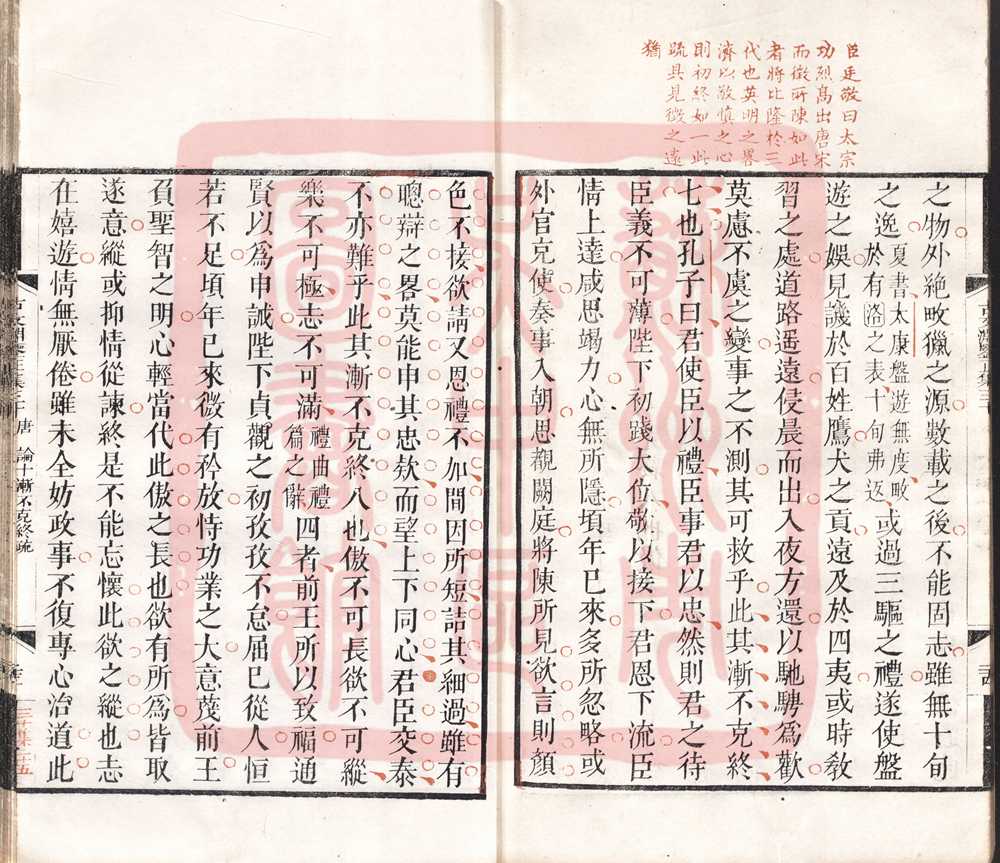 臣廷敬曰太宗
功烈高出唐宋
而徵所陳如此
者將比隆於三
代也英明之畧
濟以敬慎之心
則初終如一此
疏具見徵之遠
猶
之物外絶畋獵之源數載之後不能固志雖無十旬
之逸夏書太康盤遊無度畋於有洛之表十旬弗返或過三驅之禮遂使盤
遊之娛見譏於百姓鷹犬之貢遠及於四夷或時教
習之處道路遥遠侵晨而出入夜方還以馳騁爲歡
莫慮不虞之變事之不測其可救乎此其漸不克終
七也孔子曰君使臣以禮臣事君以忠然則君之待
臣義不可薄陛下初踐大位敬以接下君恩下流臣
情上達咸思竭力心無所隱頃年已來多所忽略或
外官充使奏事入朝思覩闕庭將陳所見欲言則顏
色不接欲請又恩禮不加間因所短詰其細過雖有
聰辯之畧莫能申其忠欵而望上下同心君臣交泰
不亦難乎此其漸不克終八也傲不可長欲不可縱
樂不可極志不可滿禮曲禮篇之辭四者前王所以致福通
賢以爲申誡陛下貞觀之初孜孜不怠屈已從人恒
若不足頃年已來微有矜放恃功業之大意蔑前王
負聖智之明心輕當代此傲之長也欲有所爲皆取
遂意縱或抑情從諫終是不能忘懷此欲之縱也志
在嬉遊情無厭倦雖未全妨政事不復專心治道此
唐 論十漸不克終疏